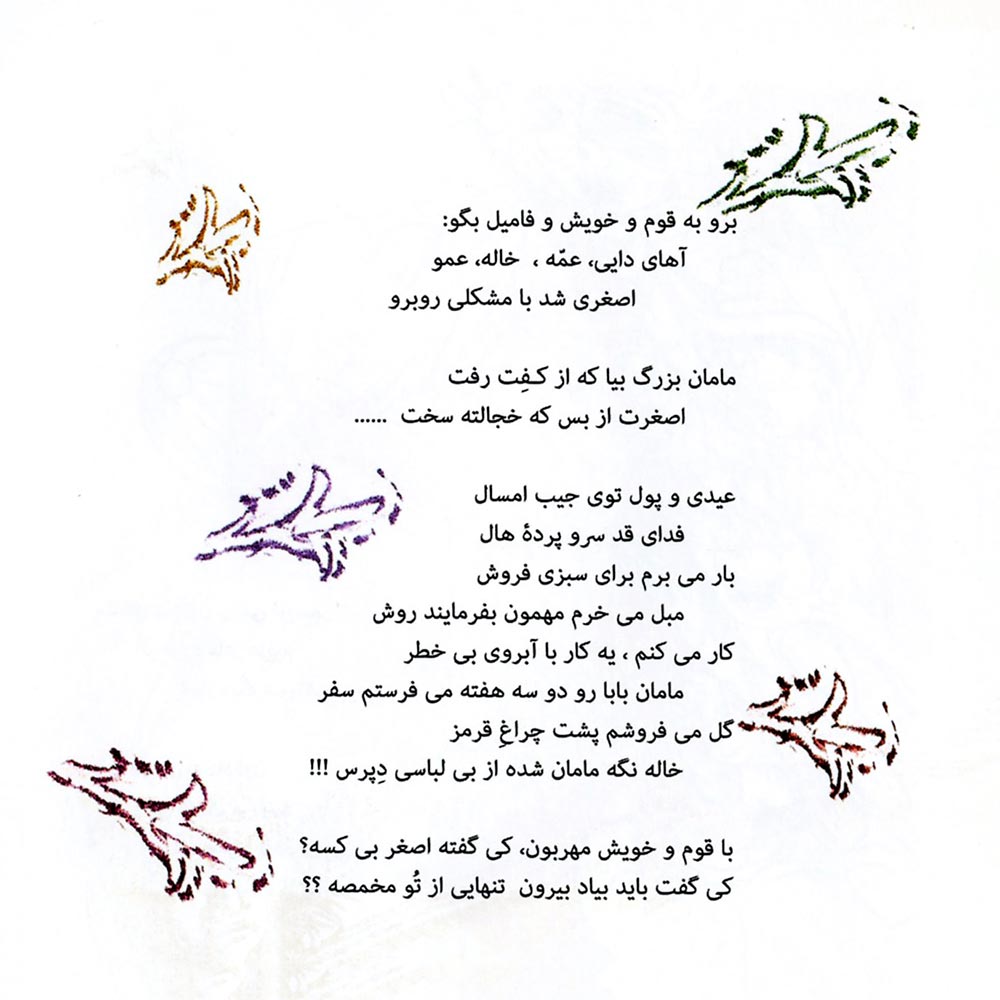 برو به قوم و خویش و فامیل بگو:
آهای دایی، عمّه ، خاله، عمو
اصغری شد با مشکلی روبرو
مامان بزرگ بیا که از کـفِت رفت
اصغرت از بس که خجالته سخت ......
عیدی و پول توی جیب امسال
فدای قد سرو پردهٔ هال
بار می برم برای سبزی فروش
مبل می خرم مهمون بفرمایند روش
کار می کنم ، یه کار با آبروی بی خطر
مامان بابا رو دو سه هفته می فرستم سفر
گل می فروشم پشت چراغِ قرمز
خاله نگه مامان شده از بی لباسی دِپرس !!!
با قوم و خویش مهربون، کی گفته اصغر بی کسه؟
کی گفت باید بیاد بیرون تنهایی از تُو مخمصه ؟؟